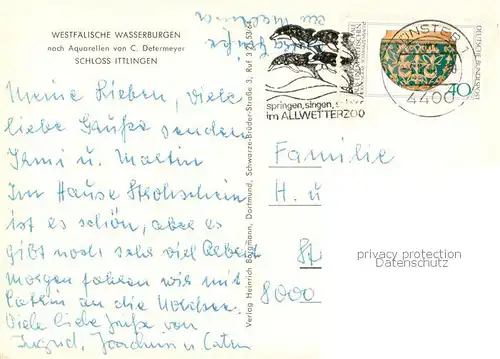 WESTFÄLISCHE WASSERBURGEN
nach Aquarellen von C. Determeyer
SCHLOSS ITTLINGEN
Meine Lieben, viele
liebe Grüße senden
Irmi u. Martin
Im Hause Strohschein
ist es schön, aber es
gibt noch sehr viel Arbeit
Morgen fahren wir mit
Catrin an die Nordsee.
Viele liebe Grüße von
Ingrid, Joachim u. Catrin
Verlag Heinrich Borgmann, Dortmund, Schwarze-Brüder-Straße 3, Ruf
springen, singen,
im ALLWETTERZOO
MÜNSTER 1
4400
DEUTSCHE BUNDESPOST
40
Familie
H. u
St
8000
privacy protection
Datenschutz